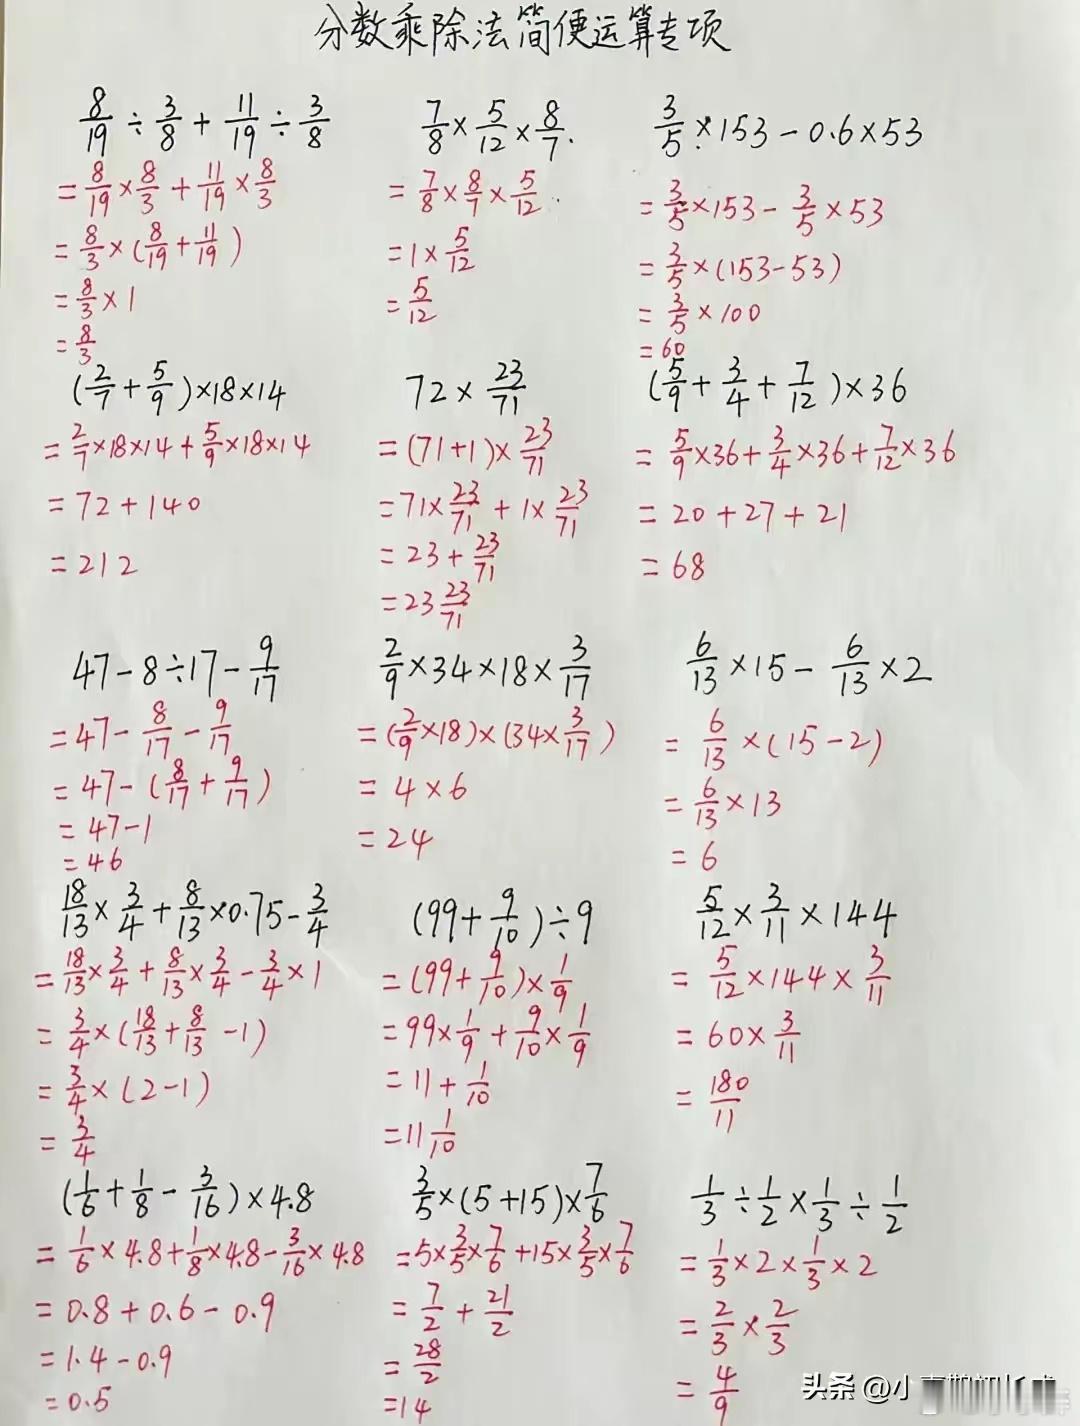 分数乘除法简便运算专项
8/19 ÷ 3/8 + 11/19 ÷ 3/8
= 8/19 × 8/3 + 11/19 × 8/3
= 8/3 × (8/19 + 11/19)
= 8/3 × 1
= 8/3
7/8 × 5/12 × 8/7.
= 7/8 × 8/7 × 5/12
= 1 × 5/12
= 5/12
3/5 × 153 - 0.6 × 53
= 3/5 × 153 - 3/5 × 53
= 3/5 × (153 - 53)
= 3/5 × 100
= 60
(2/7 + 5/9) × 18 × 14
= 2/7 × 18 × 14 + 5/9 × 18 × 14
= 72 + 140
= 212
72 × 23/71
= (71 + 1) × 23/71
= 71 × 23/71 + 1 × 23/71
= 23 + 23/71
= 23 23/71
(5/9 + 3/4 + 7/12) × 36
= 5/9 × 36 + 3/4 × 36 + 7/12 × 36
= 20 + 27 + 21
= 68
47 - 8 ÷ 17 - 9/17
= 47 - 8/17 - 9/17
= 47 - (8/17 + 9/17)
= 47 - 1
= 46
2/9 × 34 × 18 × 3/17
= (2/9 × 18) × (34 × 3/17)
= 4 × 6
= 24
6/13 × 15 - 6/13 × 2
= 6/13 × (15 - 2)
= 6/13 × 13
= 6
18/13 × 3/4 + 8/13 × 0.75 - 3/4
= 18/13 × 3/4 + 8/13 × 3/4 - 3/4 × 1
= 3/4 × (18/13 + 8/13 - 1)
= 3/4 × (2 - 1)
= 3/4
(99 + 9/10) ÷ 9
= (99 + 9/10) × 1/9
= 99 × 1/9 + 9/10 × 1/9
= 11 + 1/10
= 11 1/10
5/12 × 3/11 × 144
= 5/12 × 144 × 3/11
= 60 × 3/11
= 180/11
(1/6 + 1/8 - 3/16) × 4.8
= 1/6 × 4.8 + 1/8 × 4.8 - 3/16 × 4.8
= 0.8 + 0.6 - 0.9
= 1.4 - 0.9
= 0.5
3/5 × (5 + 15) × 7/6
= 5 × 3/5 × 7/6 + 15 × 3/5 × 7/6
= 7/2 + 21/2
= 28/2
= 14
1/3 ÷ 1/2 × 1/3 ÷ 1/2
= 1/3 × 2 × 1/3 × 2
= 2/3 × 2/3
= 4/9
头条 @小